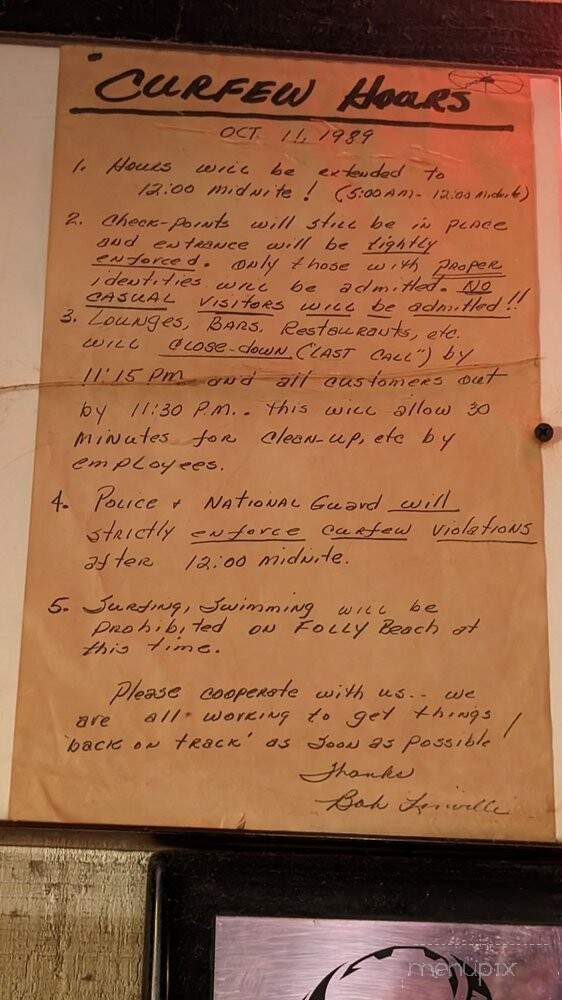 CURFEW HOURS
OCT 11, 1989
1. Hours will be extended to
12:00 midnite! (5:00 AM - 12:00 midnite)
2. Check-points will still be in place
and entrance will be tightly
enforced. Only those with proper
identities will be admitted. NO
CASUAL VISITORS will be admitted!!
3. Lounges, Bars, Restaurants, etc.
will close-down ("LAST CALL") by
11:15 PM and all customers out
by 11:30 P.M.. This will allow 30
minutes for clean-up, etc by
employees.
4. Police + National Guard will
strictly enforce curfew violations
after 12:00 midnite.
5. Surfing, Swimming will be
prohibited on Folly Beach at
this time.
Please cooperate with us -- we
are all working to get things
'back on track' as soon as possible!
Thanks
Bob Linville
menupix